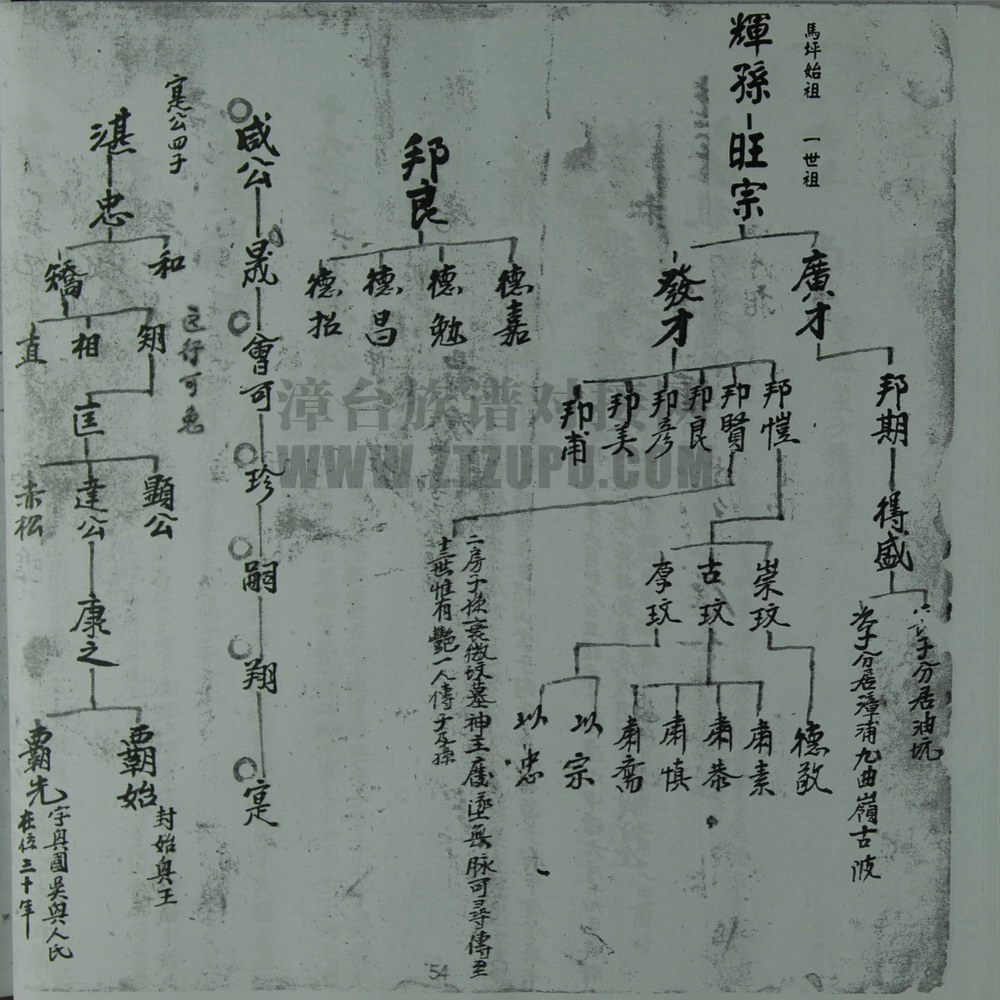 馬坪始祖 一世祖
輝孫 旺宗
廣才
發才
邦期
得盛
六子分居油坑
次子分居漳浦九曲嶺古陂
邦愷
邦賢
邦良
邦彥
邦美
邦甫
崇玟
古玟
李玟
德敬
肅素
肅恭
肅慎
肅齋
以宗
以忠
二房子孫衰微坟墓神主廢墜無脉可尋傳至
十三世惟有艷一人傳子及孫
邦良
德嘉
德勉
德昌
德招
咸公
晟
會可
珍
嗣
翔
寔
寔公四子
湛
忠
和
矯
這行可免
相
直
匡
顯公
達公
赤松
康之
霸始
封始興王
霸先
字興國吳興人氏
在位三十年
漳台族谱对接
WWW.ZTZUPU.COM
54